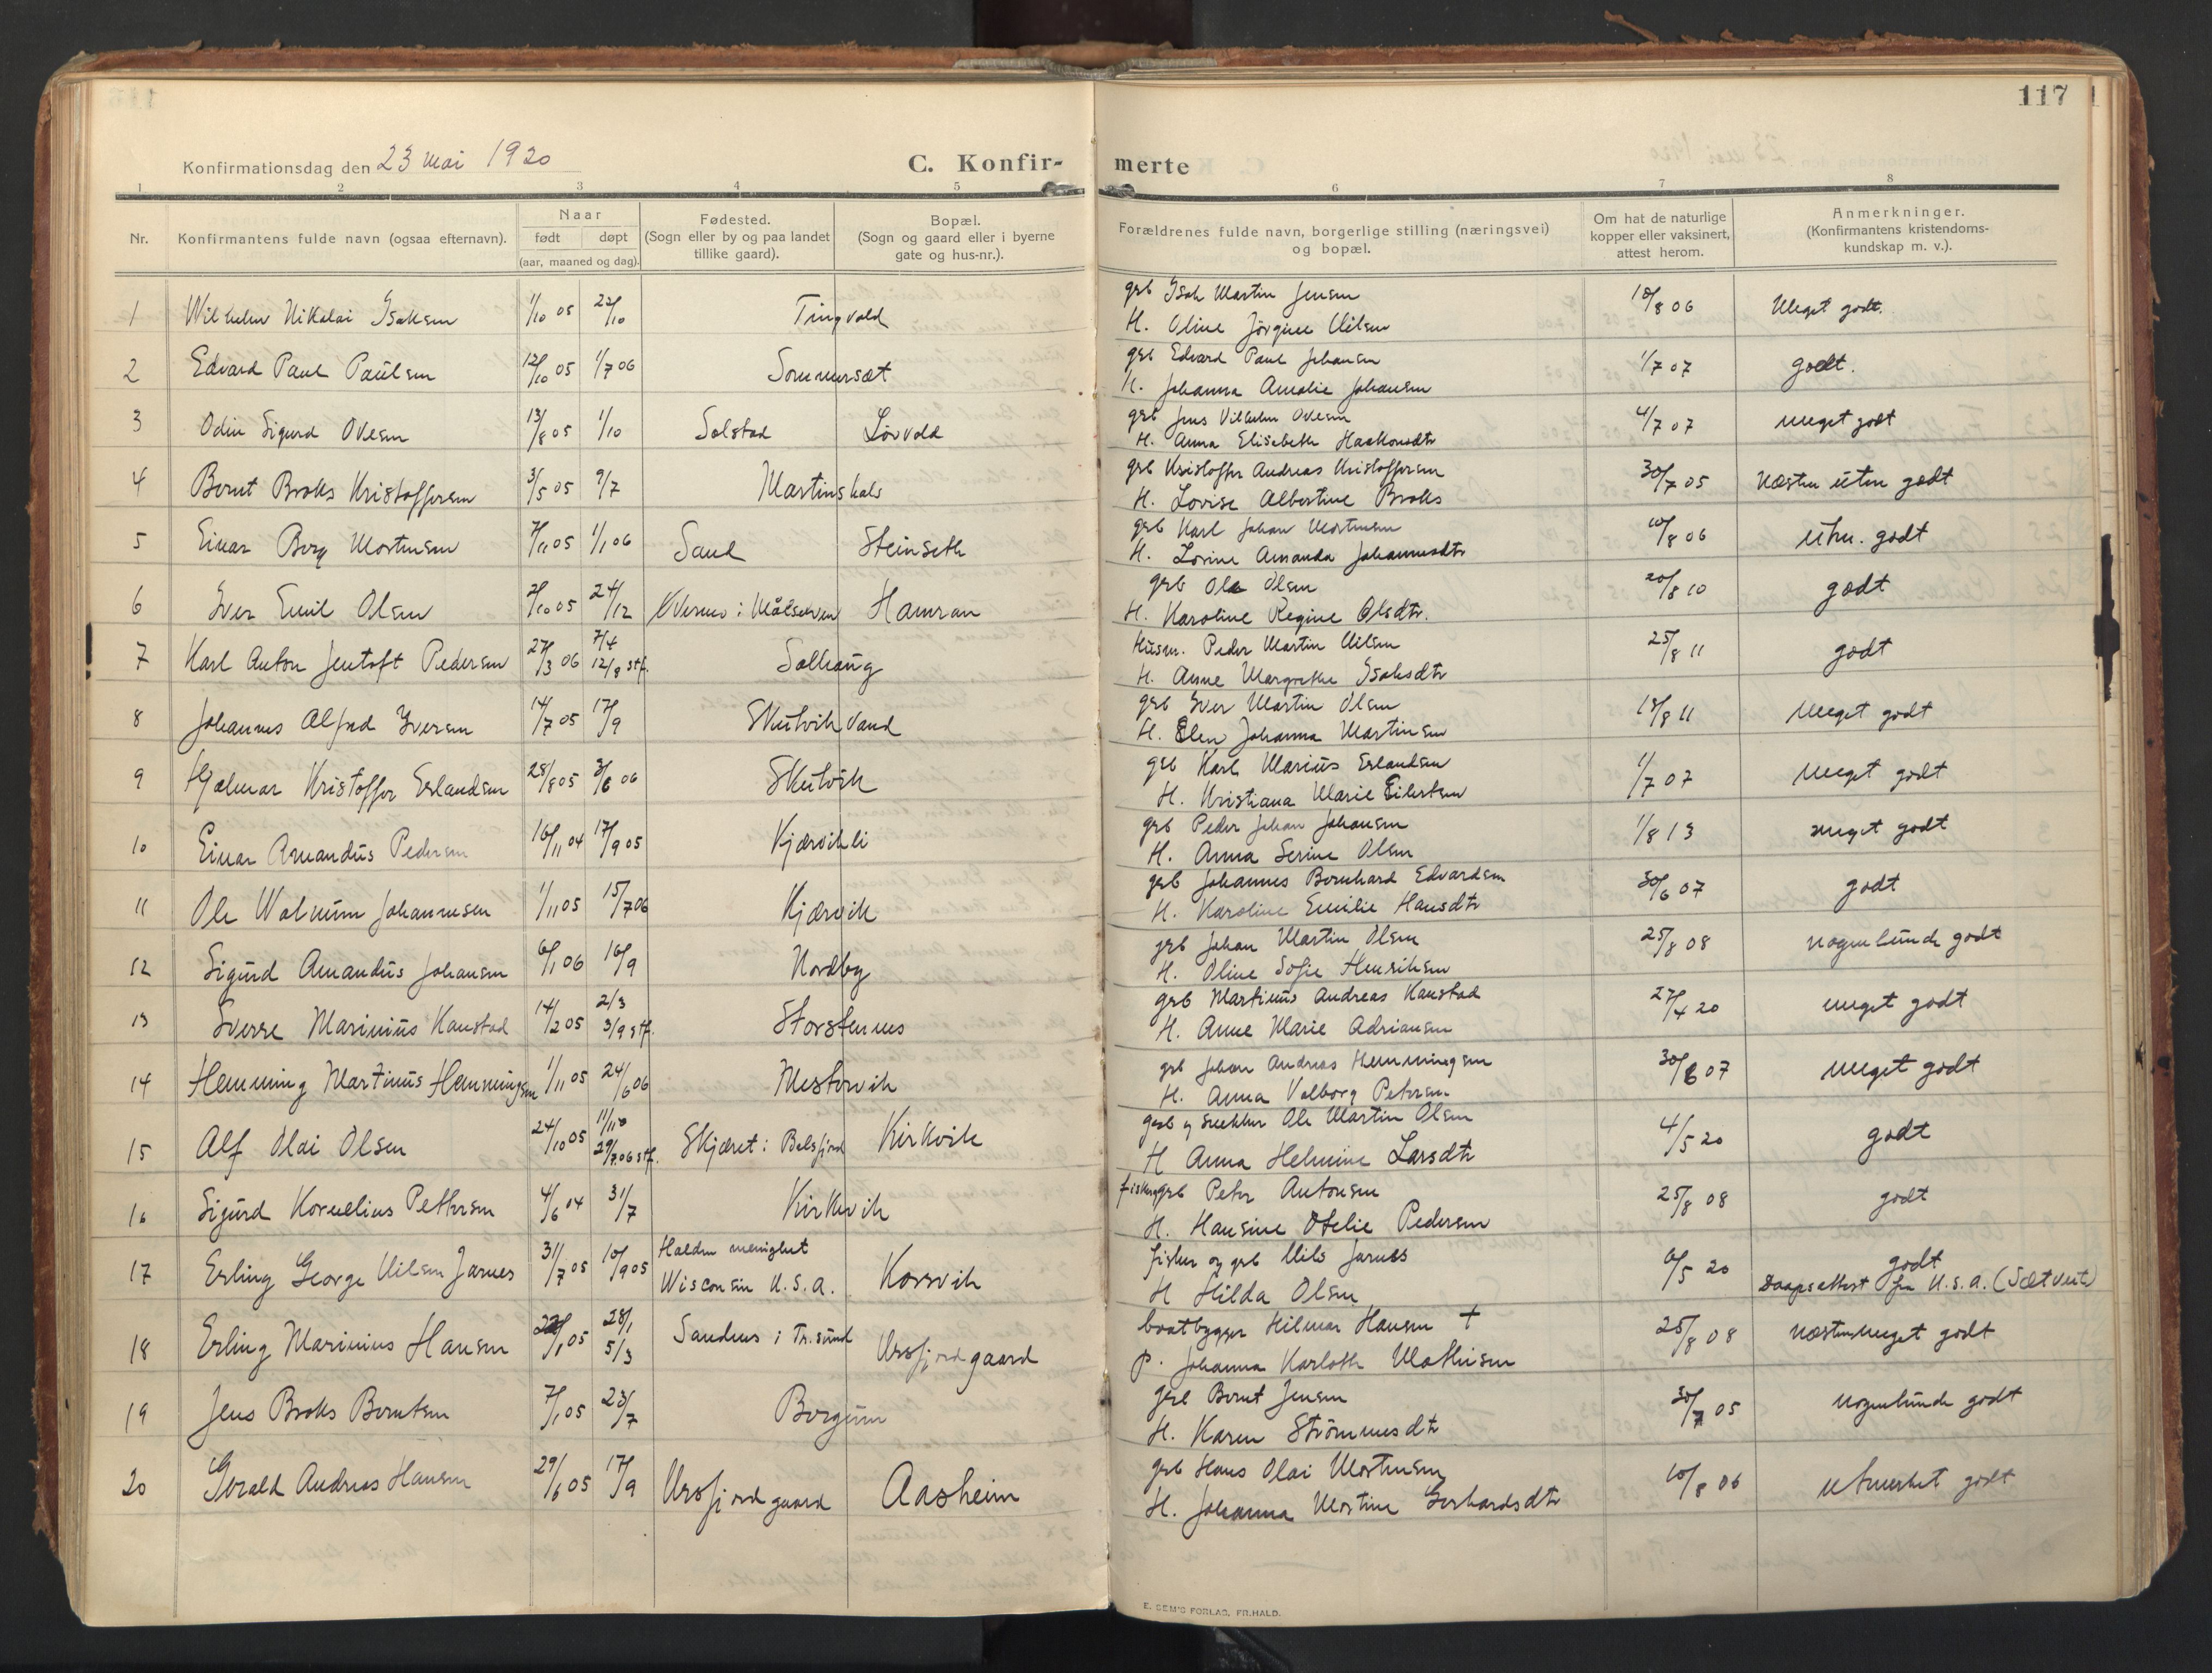 117
Konfirmationsdag den 23 mai 1920
C. Konfir-
merte
1 2 3 4 5 6 7 8
Nr.
Konfirmantens fulde navn (ogsaa efternavn).
Naar
født døpt
(aar, maaned og dag).
Fødested.
(Sogn eller by og paa landet
tillike gaard).
Bopæl.
(Sogn og gaard eller i byerne
gate og hus-nr.).
Forældrenes fulde navn, borgerlige stilling (næringsvei)
og bopæl.
Om hat de naturlige
kopper eller vaksinert,
attest herom.
Anmerkninger.
(Konfirmantens kristendoms-
kundskap m. v.).
1 Wilhelm Nikolai Isaksen 1/10 05 22/10 Tingvold
grb Isak Martin Jensen
H. Oline Jörgine Nilsen
18/8 06 Meget godt.
2 Edvard Paul Paulsen 12/10 05 1/7 06 Sommersæt
grb Edvard Paul Johansen
H. Johanna Amalie Johansen
1/7 07 godt.
3 Odin Sigurd Ovesen 13/8 05 1/10 Solstad Lövvold
grb Jens Vilhelm Ovesen
H. Anna Elisabeth Haakonsdtr
4/7 07 meget godt
4 Bernt Broks Kristoffersen 3/5 05 9/7 Martinshals
grb Kristoffer Andreas Kristoffersen
H. Lovise Albertine Broks
30/7 05 Næsten uten godt
5 Einar Berg Mortensen 7/11 05 1/1 06 Sand Steinseth
grb Karl Johan Mortensen
H. Lorine Amanda Johannesdtr
10/8 06 utm. godt
6 Iver Emil Olsen 2/10 05 24/12 i Målselven Hamran
grb Ole Olsen
H. Karoline Regine Olsdtr.
20/8 10 godt
7 Karl Anton Jentoft Pedersen 27/3 06 7/4
12/8 stf. Solhaug
Husm. Peder Martin Nilsen
H. Anne Margrethe Isaksdtr
25/8 11 godt
8 Johannes Alfred Iversen 14/7 05 17/9 Skutvikvand
grb Iver Martin Olsen
H. Elen Johanna Martinsen
18/8 11 Meget godt
9 Hjalmar Kristoffer Erlandsen 28/8 05 3/6 06 Skutvik
grb Karl Marius Erlandsen
H. Kristiana Marie Eilertsen
1/7 07 Meget godt
10 Einar Amandus Pedersen 16/11 04 17/9 05 Kjærvikli
grb Peder Johan Johansen
H. Anna Serine Olsen
1/8 13 meget godt
11 Ole Walnum Johannesen 1/11 05 15/7 06 Kjærvik
grb Johannes Bernhard Edvardsen
H. Karoline Emilie Hansdtr
30/6 07 godt
12 Sigurd Amandus Johansen 6/1 06 16/9 Nordby
grb Johan Martin Olsen
H. Oline Sofie Henriksen
25/8 08 nogenlunde godt
13 Sverre Marinius Kanstad 14/2 05 2/3
3/9 stf. Storstennes
grb Martinus Andreas Kanstad
H. Anne Marie Adriansen
27/4 20 meget godt
14 Hemming Martinus Hemmingsen 1/11 05 24/6 06 Mestervik
grb Johan Andreas Hemmingsen
H. Anna Valborg Petersen
30/6 07 Meget godt
15 Alf Olai Olsen 24/10 05 11/11
29/7.06 stf. Skjæret i Balsfjord Kirkvik
grb og snekker Ole Martin Olsen
H Anna Helmine Larsdtr
4/5 20 godt
16 Sigurd Kornelius Pettersen 4/6 04 31/7 Kirkevik
fisker grb Peter Antonsen
H. Hansine Otelie Pedersen
25/8 08 godt
17 Erling George Nilsen Jarnes 31/7 05 10/9 05 Halden menighet
Wisconsin U.S.A. Korsvik
fisker og grb Nils Jarnes
H Hilda Olsen
6/5 20 godt
Daapsattest fra U.S.A. (Sætveit)
18 Erling Marinius Hansen /1 05 28/1
5/3 Sandnes i Tr.sund Ursfjordgaard
baatbygger Hilmar Hansen +
p. Johanna Karloth Mathisen
25/8 08 Næsten meget godt
19 Jens Broks Berntsen 7/1 05 23/7 Borgum
grb Bernt Jensen
H. Karen Strömmesdtr
30/7 05 Nogenlunde godt
20 Gerald Andreas Hansen 29/6 05 17/9 Ursfjordgaard Aasheim
grb Hans Olai Mortensen
H. Johanna Mortine Gerhardsdtr
10/8 06 utmerket godt
E. SEM'S FORLAG, FR.HALD.